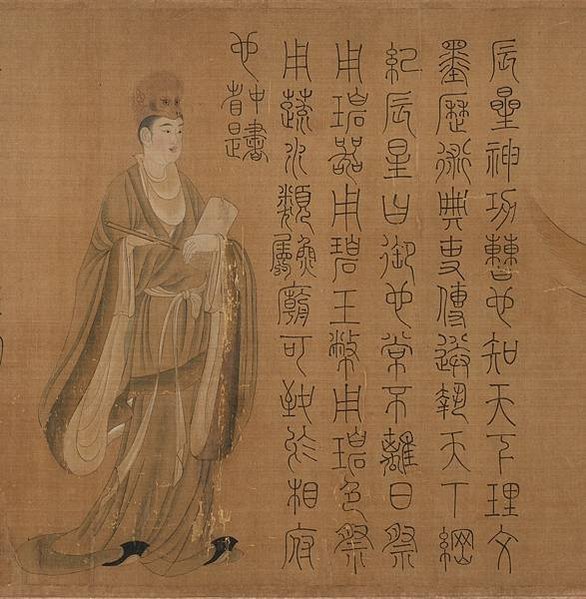 辰星神功曹也知天下理文
墨歷術典吏傳送執天下綱
紀辰星御也常不離日祭
用碧器用碧玉幣用碧色祭
用蔬水類魚屬廟可致於相府
也中書省是